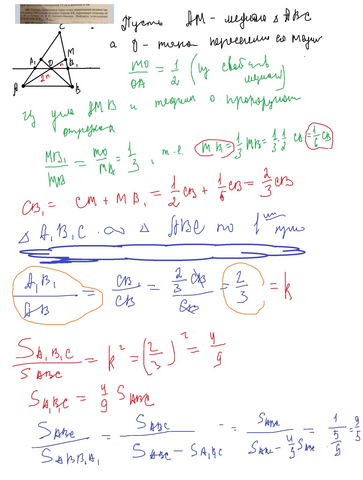 C
A₁ O M B₁
2n n
A B
Пусть AM - медиана △ ABC
а O - точка пересечения его медиан
MO/OA = 1/2 (из свойств медиан)
из угла AMB и теореми о пропорцион
отрезках
MB₁/MB = MO/MA = 1/3, т.е. MB₁ = 1/3 MB = 1/3 · 1/2 CB = 1/6 CB
CB₁ = CM + MB₁ = 1/2 CB + 1/6 CB = 2/3 CB
△ A₁B₁C ∞ △ ABC по 1
A₁B₁/AB = CB₁/CB = 2/3 CB/CB = 2/3 = k
S A₁B₁C / S ABC = k² = (2/3)² = 4/9
S A₁B₁C = 4/9 S ABC
S ABC / S ABB₁A₁ = S ABC / S ABC - S A₁B₁C = S ABC / S ABC - 4/9 S ABC = 1 / 5/9 = 9/5